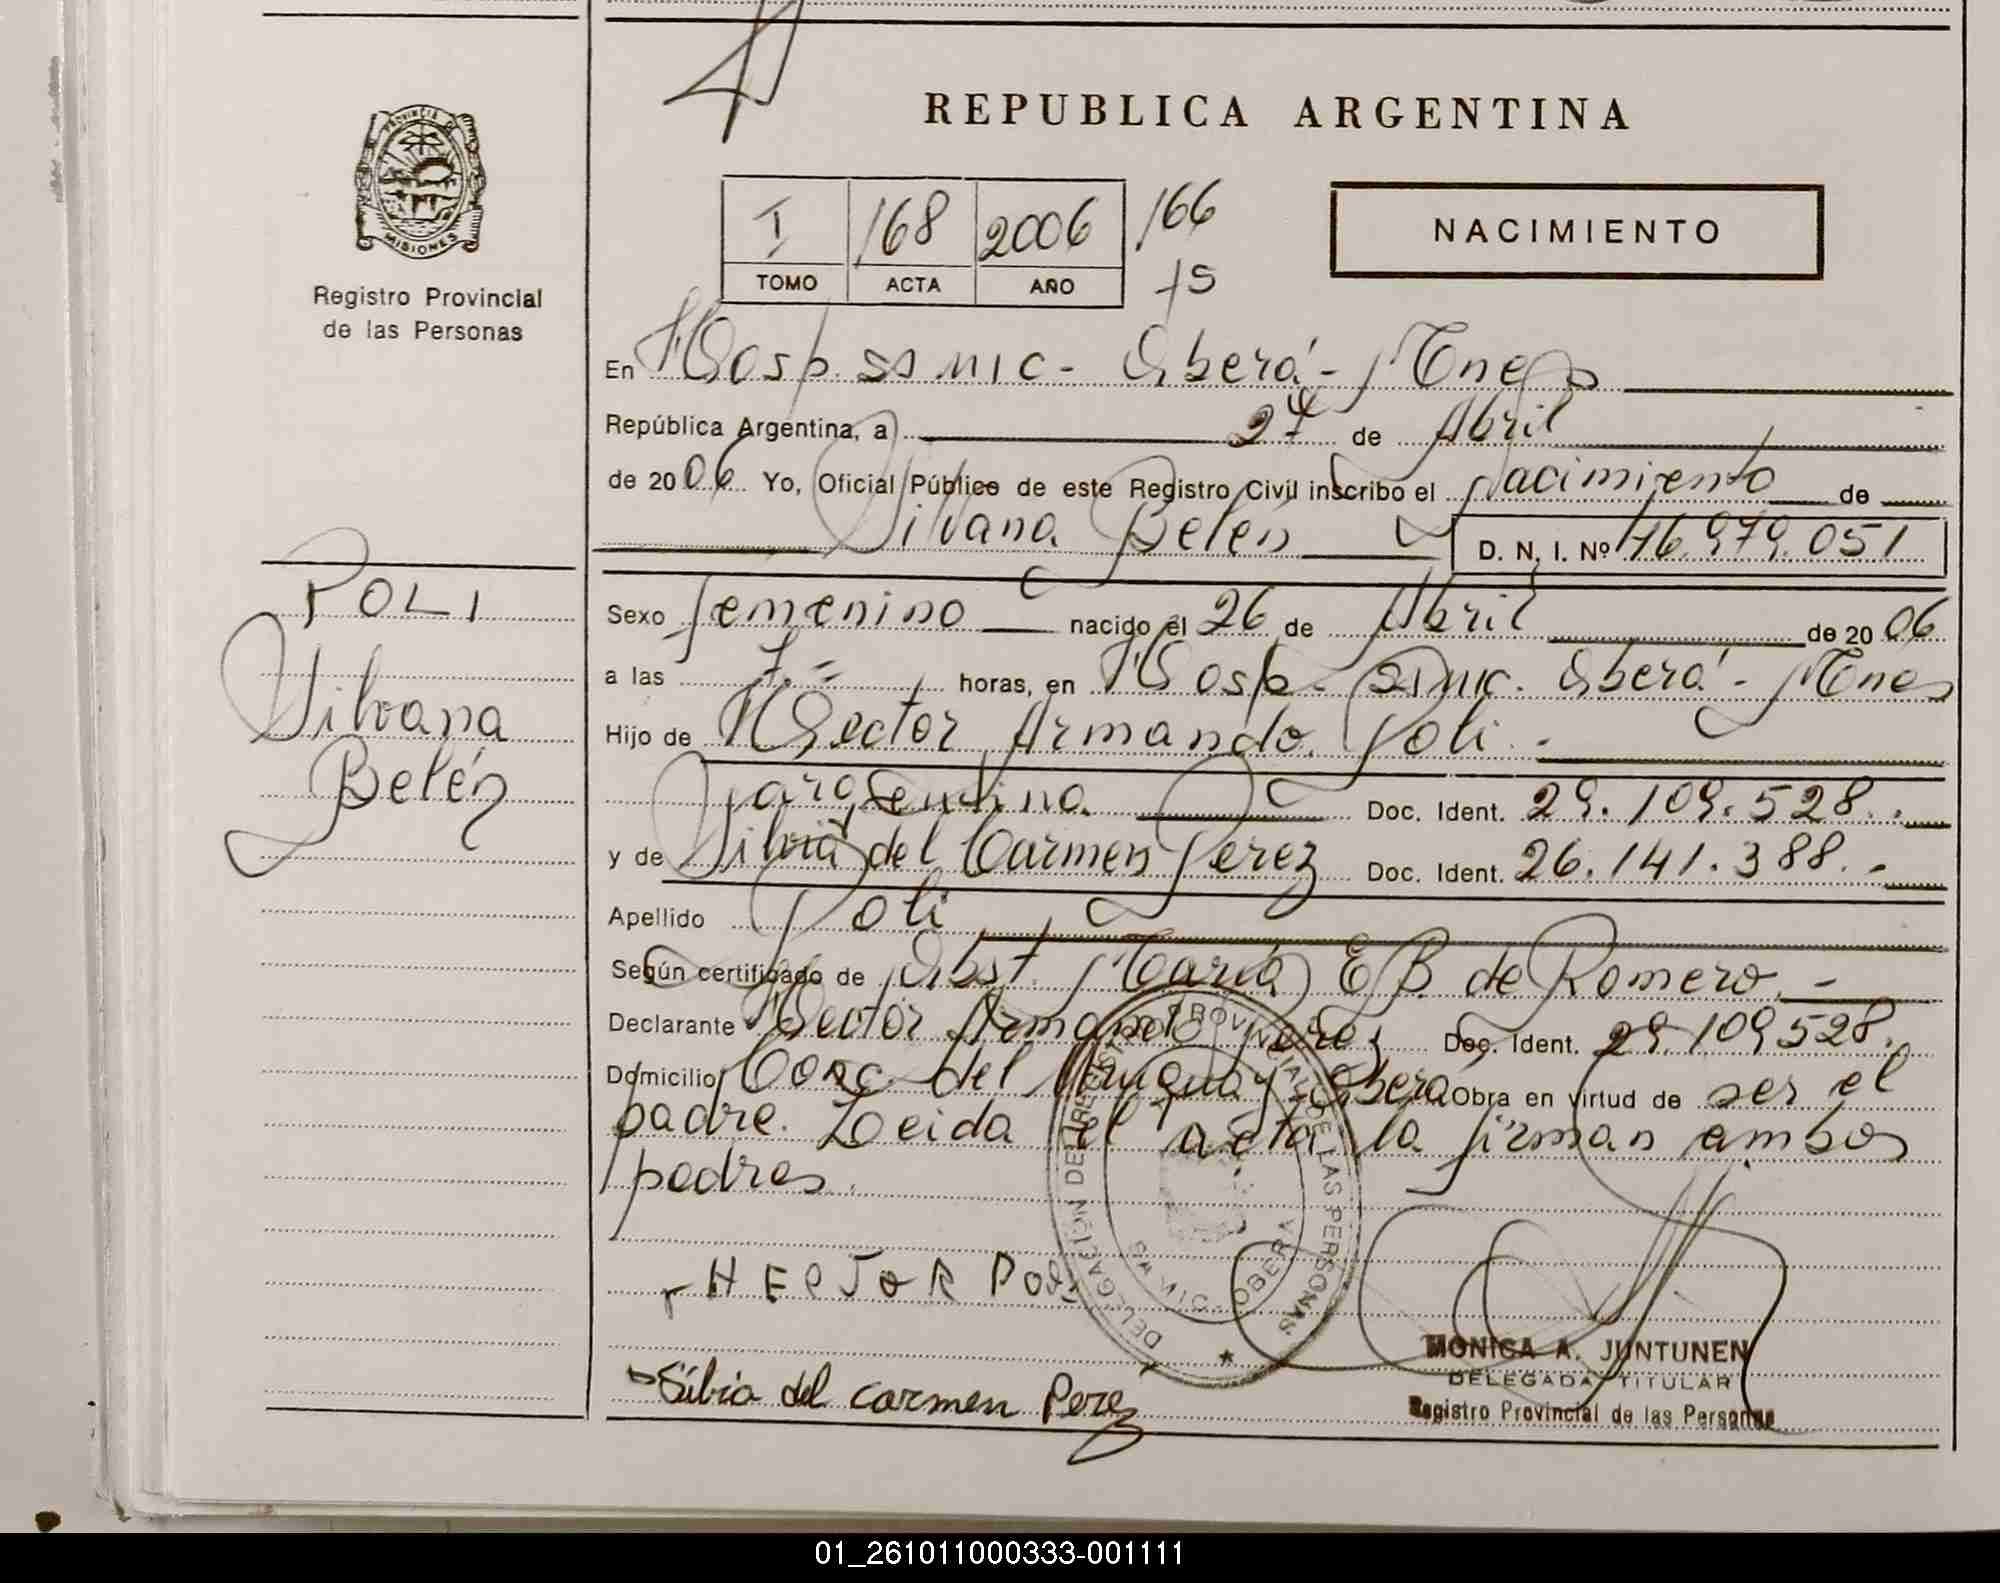 REPUBLICA ARGENTINA
PROVINCIA DE
MISIONES
Registro Provincial
de las Personas
I 168 2006 166
TOMO ACTA AÑO 75
NACIMIENTO
En Hosp. SS MIC - Oberá - Mnes
República Argentina, a 27 de Abril
de 2006 Yo, Oficial Público de este Registro Civil inscribo el Nacimiento de
Silvana Belén D. N. I. Nº 76.979.051
Sexo femenino nacido el 26 de Abril de 2006
a las 7.= horas, en Hosp. SS MIC. Oberá - Mnes
Hijo de Hector Armando Poli.-
argentina Doc. Ident. 29.109.528.-
y de Silvia del Carmen Perez Doc. Ident. 26.141.388.-
Apellido Poli
Según certificado de Obst. María E B. de Romero.-
Declarante Hector Armando Doc. Ident. 29.109528.
Domicilio Conc. del Uruguay Oberá Obra en virtud de ser el
padre. Leida el acta la firman ambos
padres.
POLI
Silvana
Belén
DELEGACION DEL REGISTRO PROVINCIAL DE LAS PERSONAS
OBERA
HECTOR POLI
Silvia del carmen Perez
MONICA A. JUNTUNEN
DELEGADA TITULAR
Registro Provincial de las Personas
01_261011000333-001111